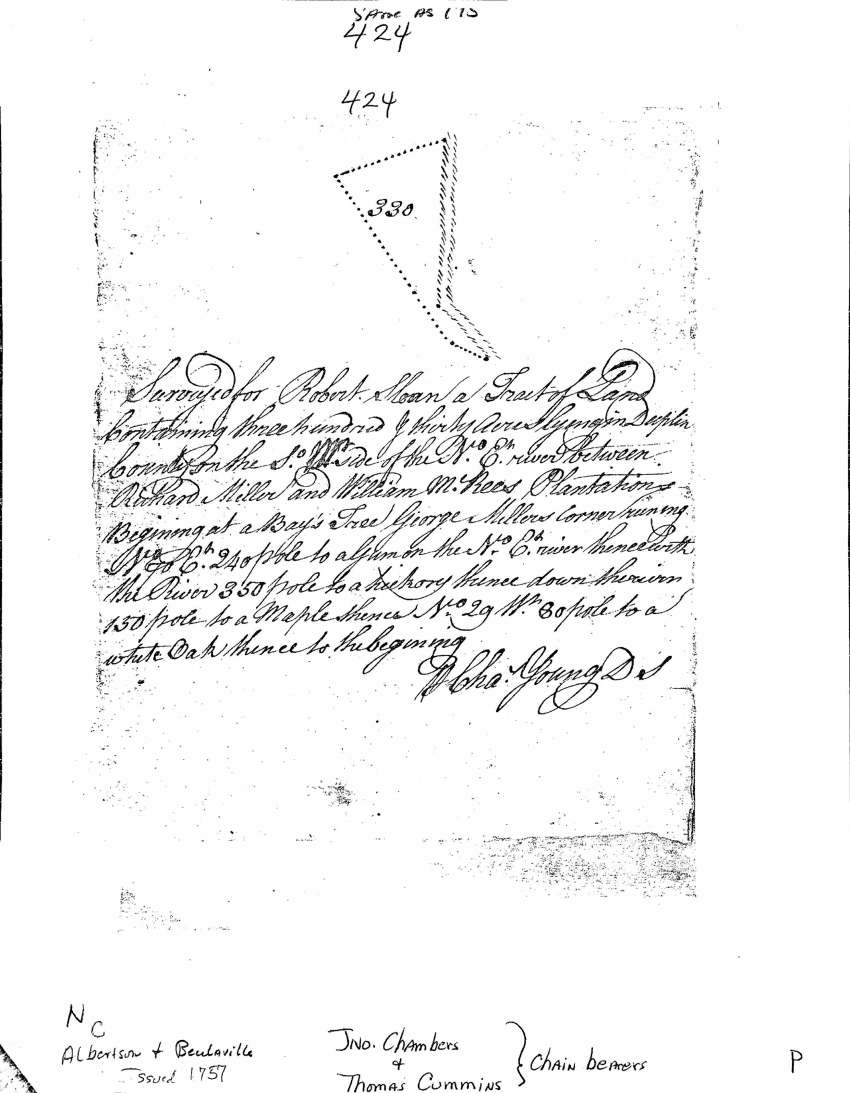 Same AS 
424
424
330
Surveyed for Robert Sloan a Tract of Land
Containing three hundred & thirty Acres lying in Duplin
County on the So. Side of the No. Eth. river between
Richard Miller and William McRees Plantations
Begining at a Bay's Tree George Millers Corner runing
No. Eth. 240 pole to a Gum on the No. Eth. river thence with
the River 350 pole to a hickory thence down the river
150 pole to a Maple thence No. 29 Wt. 80 pole to a
white Oak thence to the begining
Cha. Young D S
N C
Albertson + Beulaville
Issued 1757
Jno. Chambers
+
Thomas Cummins
} Chain bearers
P